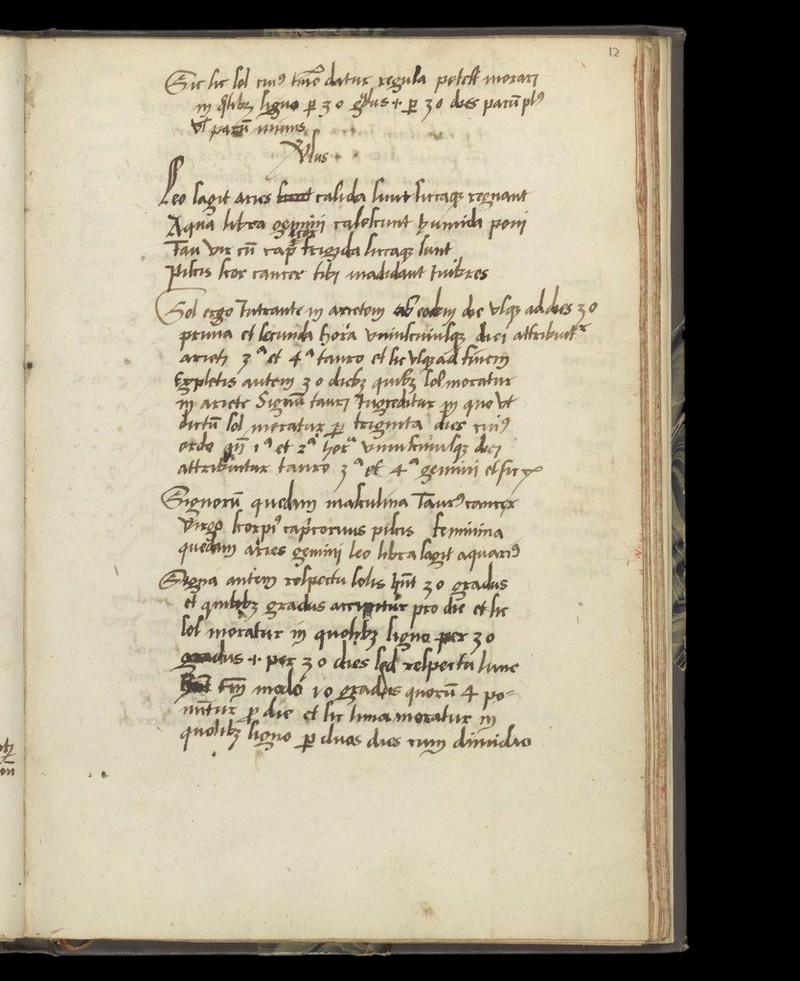 12
Sic hic sol cuiꝰ datur regula potest morari
in qͦlibꝫ signo ꝑ 30 gͣdus + ꝑ 30 dies parū plꝰ
vl parū minus
Vsus
Leo sagit aries calida sunt siccaqꝫ regnant
Aqua libra gemini calescunt humida poni
Tau vir cū capͥ frigida siccaqꝫ sunt
Piscis scor cancer tibi madidant imbres
Sol ergo Intrante in arietem ab eodem die vsqꝫ ad dies 30
prima et secunda hora vniuscuiusqꝫ diei attribuitᷣ
arieti 3ᵃ et 4ᵃ tauro et sic vsqꝫ ad finem
Expletis autem 30 diebꝫ quibꝫ sol moratur
in ariete Signū tauri Ingreditur in quo vt
dictū sol moratur ꝑ triginta dies cuiꝰ
ordo 1ᵃ et 2ᵃ horᵃ vniuscuiusqꝫ diei
attribuitur tauro 3ᵃ et 4ᵃ gemini et sic
Signorū quedam masculina Taurꝰ cancer
Virgo scorpiꝰ capͥcornus piscis feminina
quedam aries gemini leo libra sagit aquariꝰ
Signa autem respectu solis hn̄t 30 gradus
et quilibꝫ gradus accipitur pro die et sic
sol moratur in quolibꝫ signo per 30
gradus + per 30 dies sed respectu lune
tm̄ modo 10 gradus quorū 4 po-
nūtur ꝑ die et sic luna moratur in
quolibꝫ signo ꝑ duos dies cum dimidio